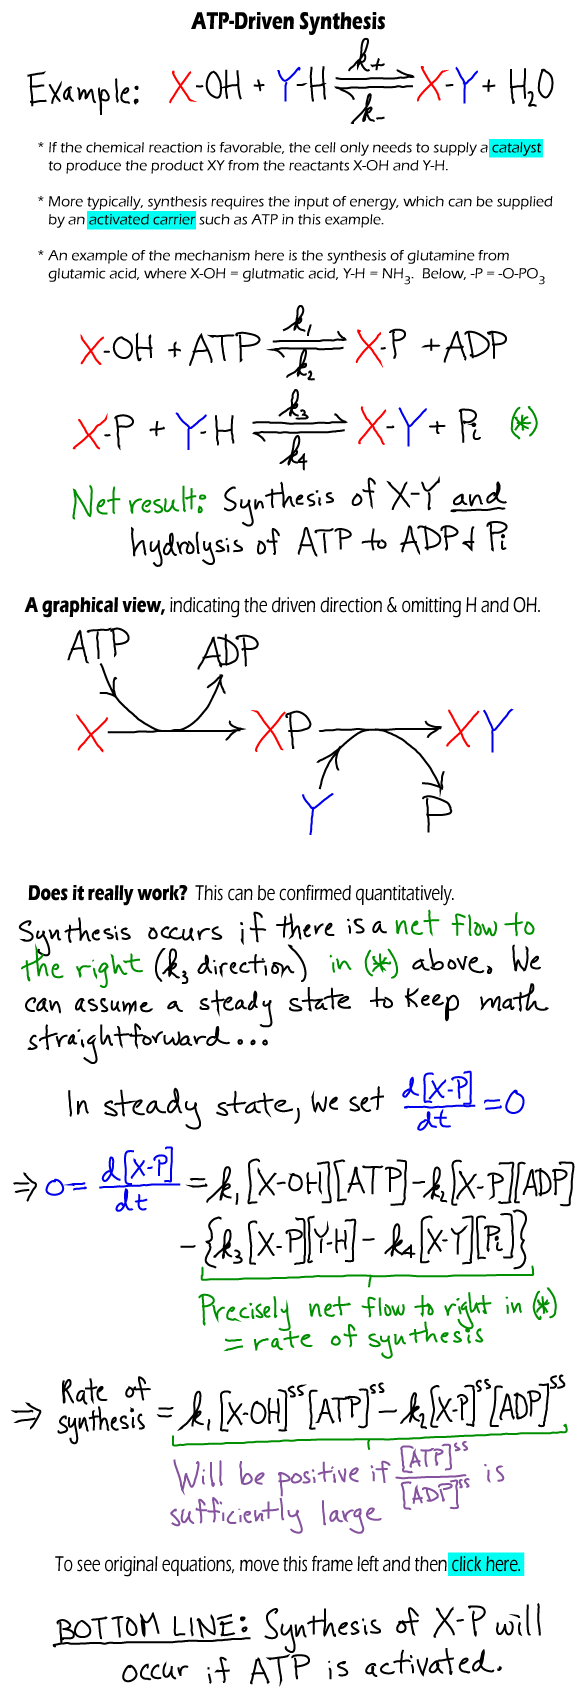 ATP-Driven Synthesis
k+
Example: X-OH + Y-H ⇌ X-Y + H₂O
k-
* If the chemical reaction is favorable, the cell only needs to supply a catalyst
to produce the product XY from the reactants X-OH and Y-H.
* More typically, synthesis requires the input of energy, which can be supplied
by an activated carrier such as ATP in this example.
* An example of the mechanism here is the synthesis of glutamine from
glutamic acid, where X-OH = glutmatic acid, Y-H = NH₃. Below, -P = -O-PO₃
k₁
X-OH + ATP ⇌ X-P + ADP
k₂
k₃
X-P + Y-H ⇌ X-Y + Pi (*)
k₄
Net result: Synthesis of X-Y and
hydrolysis of ATP to ADP & Pi
A graphical view, indicating the driven direction & omitting H and OH.
ATP ADP
X XP XY
Y P
Does it really work? This can be confirmed quantitatively.
Synthesis occurs if there is a net flow to
the right (k₃ direction) in (*) above. We
can assume a steady state to keep math
straightforward...
In steady state, we set d[X-P]/dt = 0
⇒ 0 = d[X-P]/dt = k₁[X-OH][ATP] - k₂[X-P][ADP]
- {k₃[X-P][Y-H] - k₄[X-Y][Pi]}
Precisely net flow to right in (*)
= rate of synthesis
⇒ Rate of synthesis = k₁[X-OH]ˢˢ[ATP]ˢˢ - k₂[X-P]ˢˢ[ADP]ˢˢ
Will be positive if [ATP]ˢˢ/[ADP]ˢˢ is
sufficiently large
To see original equations, move this frame left and then click here.
BOTTOM LINE: Synthesis of X-P will
occur if ATP is activated.